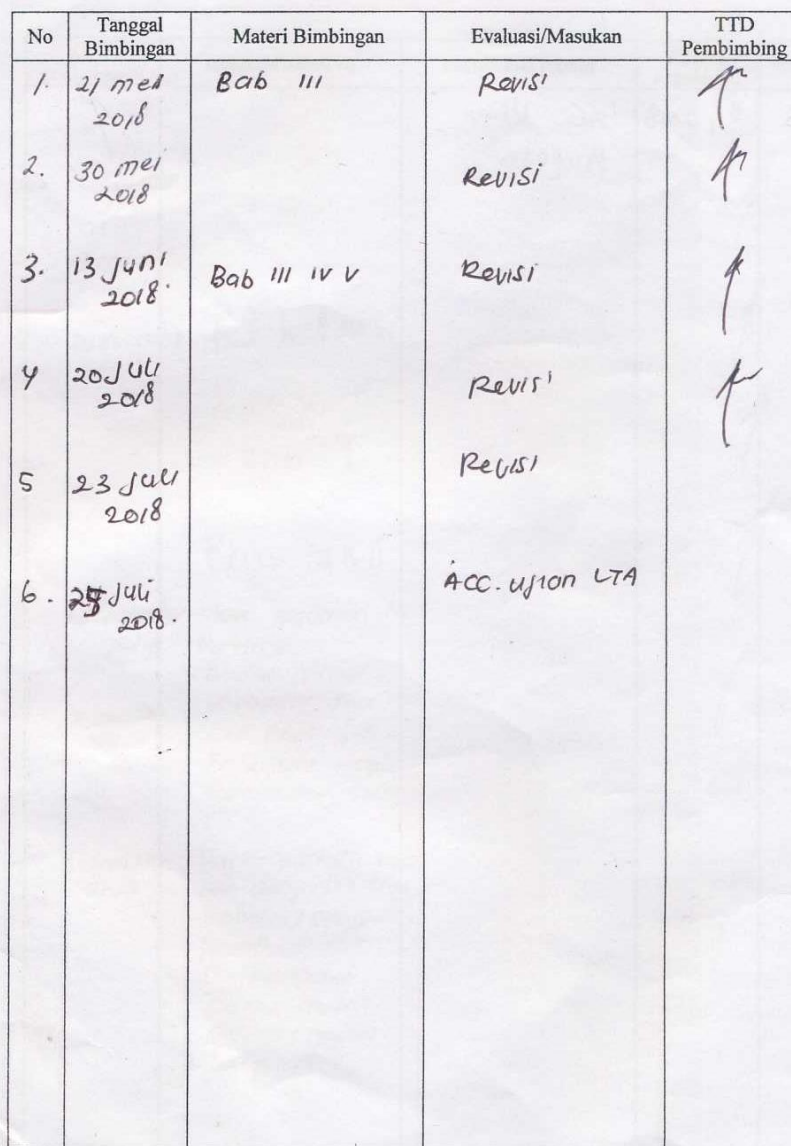 No Tanggal Bimbingan Materi Bimbingan Evaluasi/Masukan TTD Pembimbing
1. 21 mei 2018 Bab III Revisi
2. 30 mei 2018 Revisi
3. 13 Juni 2018. Bab III IV V Revisi
4 20 Juli 2018 Revisi
5 23 Juli 2018 Revisi
6. Juli 2018. ACC. Ujian LTA